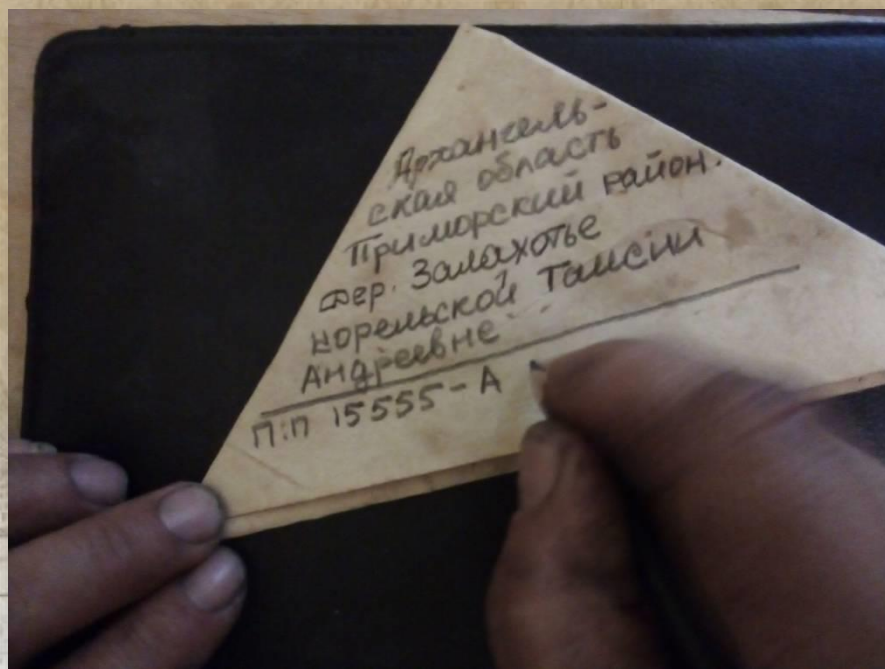 Архангель-
ская область
Приморский район.
дер. Залахотье
Корельской Таисии
Андреевне
П:П 15555-А